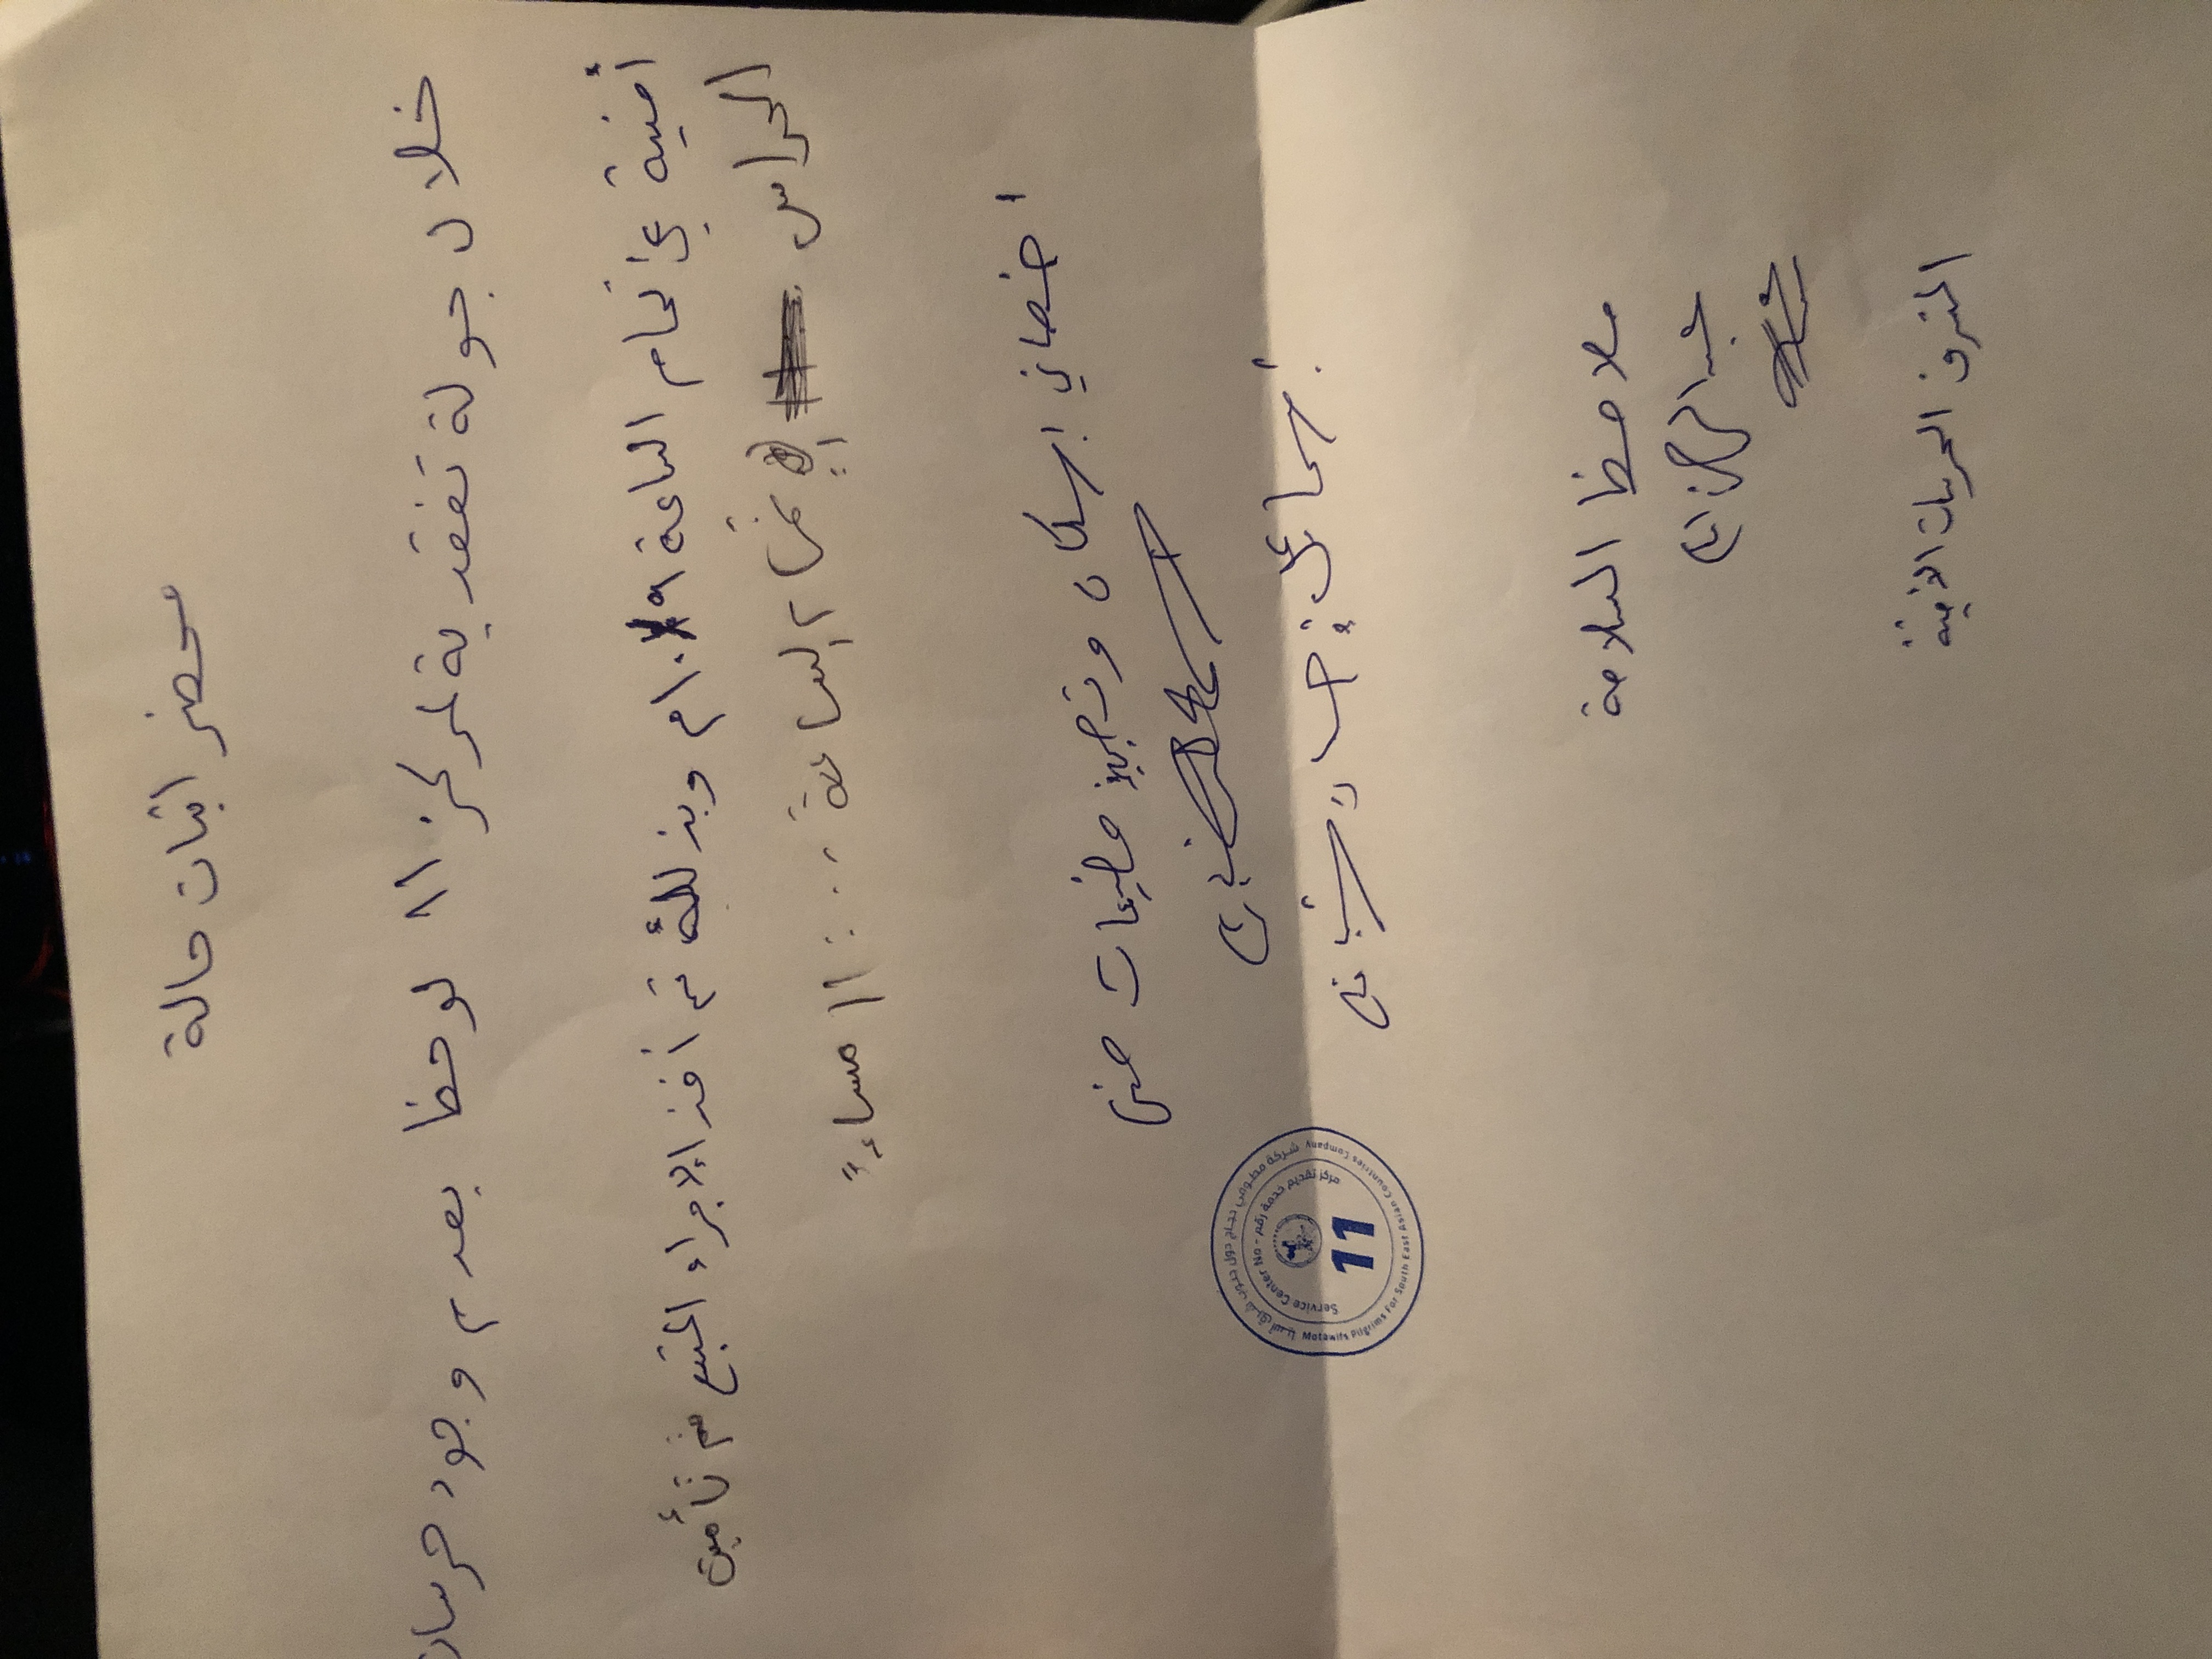 محضر اثبات حالة
خلال جولة تفقدية لمركز ١١ لوحظ بعدم وجود حرسات
أمنية في تمام الساعة ١٠:١٩م وبذلك تم أخذ الإجراء المتبع تم تأمين
الحراس إلى تمام الساعة ١١:٠٠ مساءً
اخصائي إسكان وتجهيز مخيمات منى
إسماعيل إحسان
شركة مطوفي حجاج دول جنوب شرق آسيا
مركز تقديم خدمة رقم - Service Center No
11
Motawifs Pilgrims For South East Asian Countries Company
ملاحظ السلامة
عبدالرحمن
المشرف الحرسات الأمنية